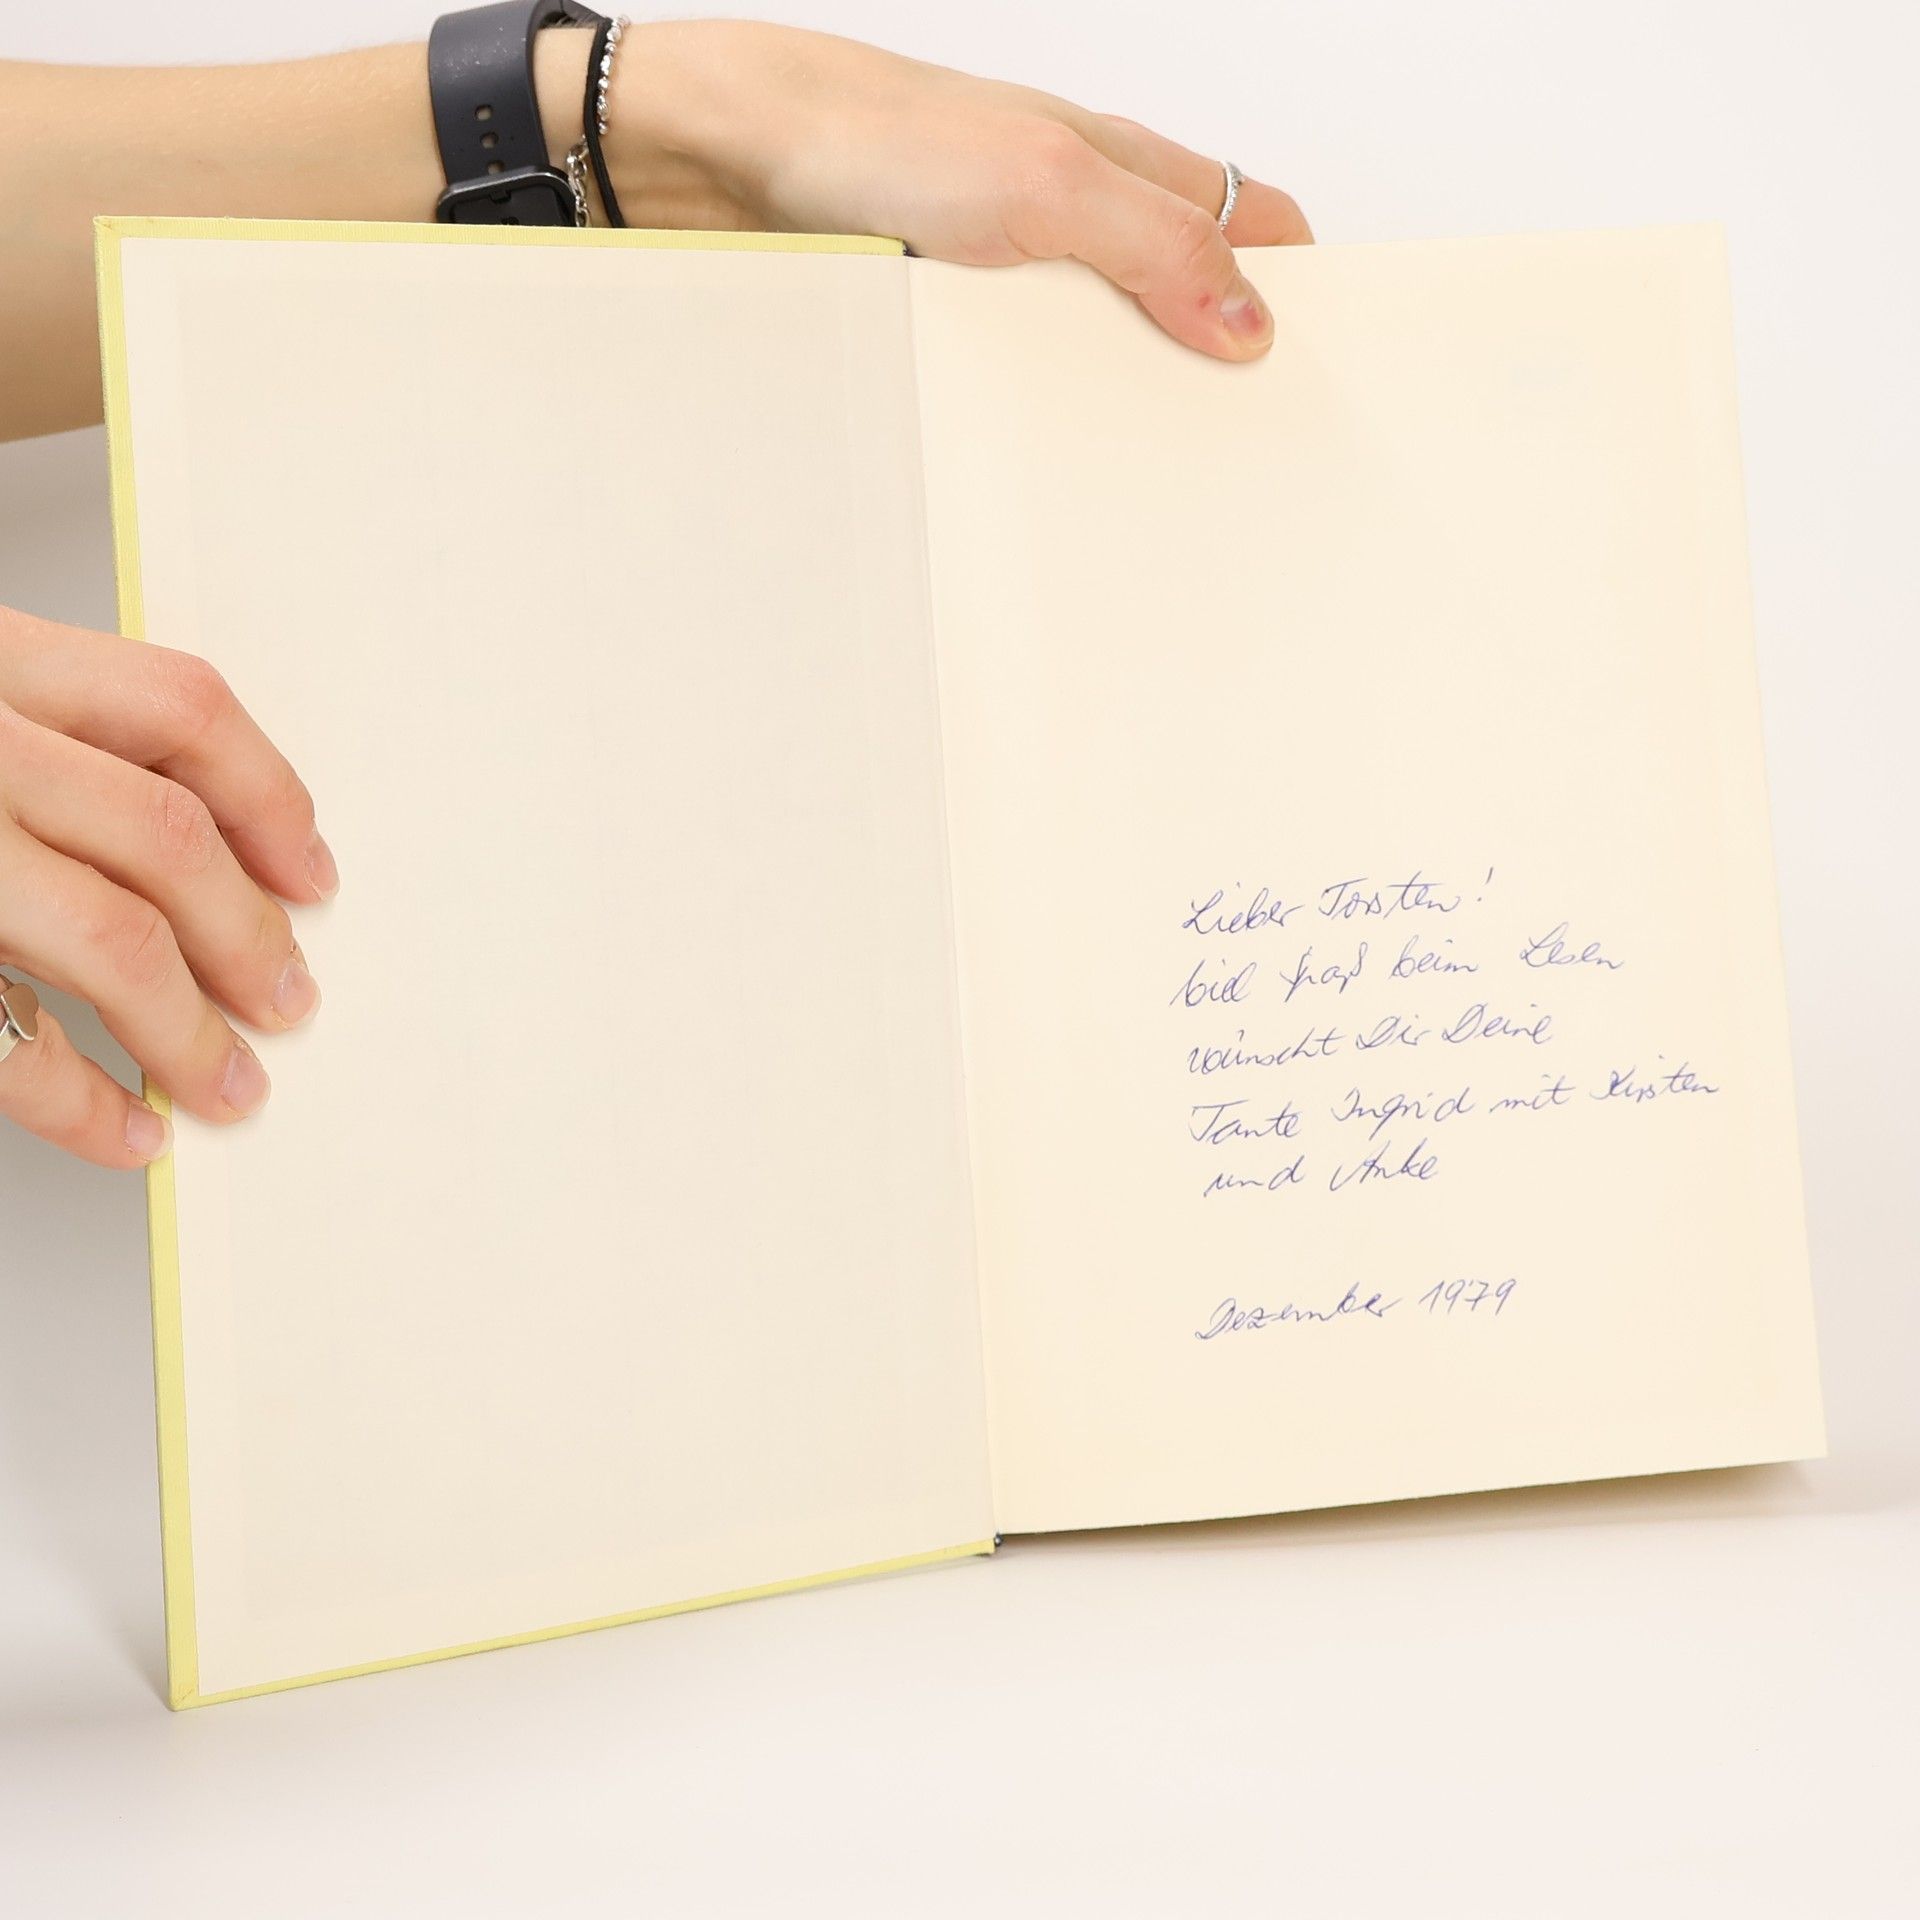 Lieber Torsten!
viel Spaß beim Lesen
wünscht Dir Deine
Tante Ingrid mit Kirsten
und Anke
Dezember 1979